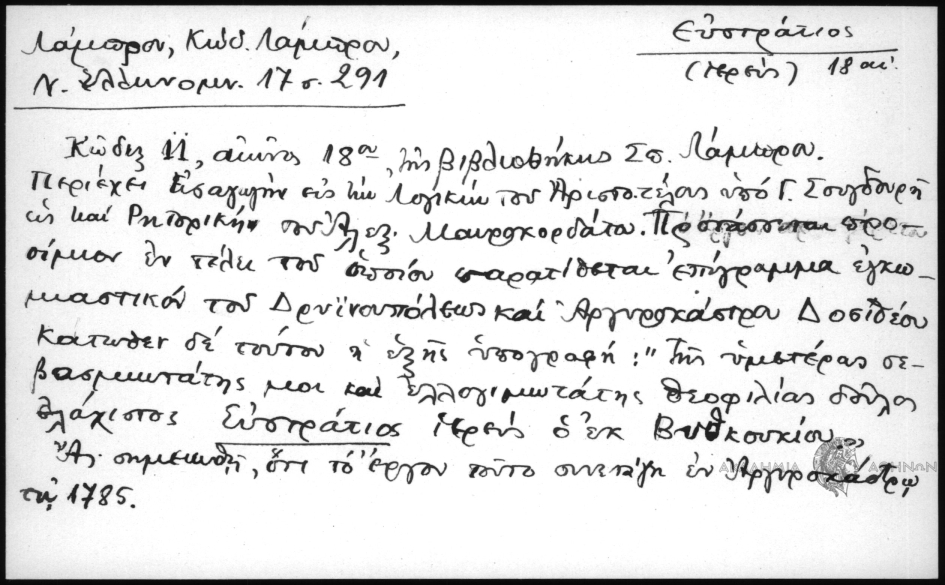 Λάμπρου, Κώδ. Λάμπρου,
Ν. Ἑλληνομν. 17 σ. 291
Εὐστράτιος
(ἱερεύς) 18 αἰ.
Κῶδιξ 11, αἰῶνος 18ου, τῆς βιβλιοθήκης Σπ. Λάμπρου.
Περιέχει Εἰσαγωγὴν εἰς τὴν Λογικὴν τοῦ Ἀριστοτέλους ὑπὸ Γ. Σουγδουρῆ
ὡς καὶ Ρητορικὴν τοῦ Ἀλεξ. Μαυροκορδάτου. Προτάσσεται προ-
οίμιον ἐν τέλει τοῦ ὁποίου παρατίθεται ἐπίγραμμα ἐγκω-
μιαστικόν τοῦ Δρυϊνουπόλεως καὶ Ἀργυροκάστρου Δοσιθέου
κάτωθεν δέ τούτου ἡ ἑξῆς ὑπογραφή: "Τῆς ὑμετέρας σε-
βασμιωτάτης μοι καὶ ἐλλογιμωτάτης θεοφιλίας δοῦλος
ἐλάχιστος Εὐστράτιος ἱερεύς ὁ ἐκ Βυθκουκίου"
Ἄς σημειωθῇ, ὅτι τὸ ἔργον τοῦτο συνετάγη ἐν Ἀργυροκάστρῳ
τῷ 1785.
ΑΚΑΔΗΜΙΑ ΑΘΗΝΩΝ